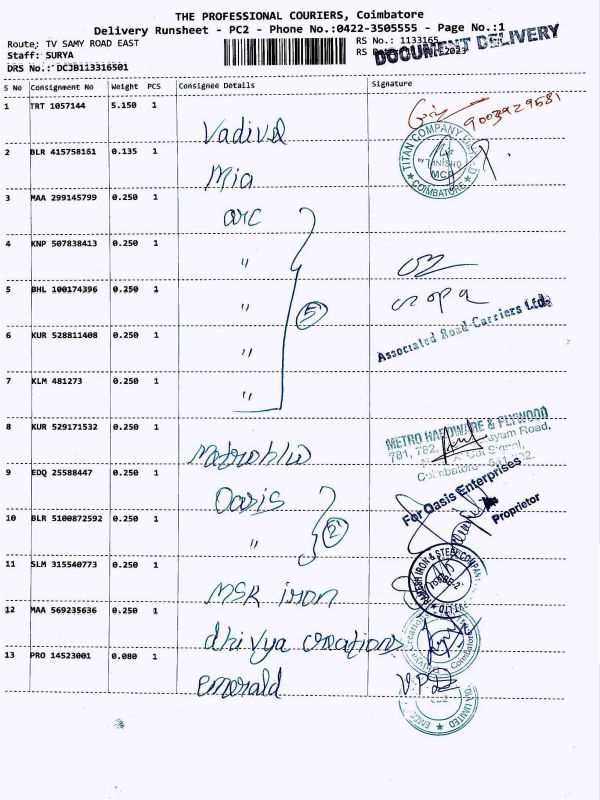 THE PROFESSIONAL COURIERS, Coimbatore
Delivery Runsheet - PC2 - Phone No.:0422-3505555 - Page No.:1
Route; TV SAMY ROAD EAST
RS No.: 1133165
Staff: SURYA
RS
DOCUMENT DELIVERY
DRS No.: DCJB113316501
S No Consignment No Weight PCS Consignee Details Signature
1 TRT 1057144 5.150 1 Vadivel
9003929581
2 BLR 415758161 0.135 1 Mia
TITAN COMPANY
TANISHQ
MCP
COIMBATORE
3 MAA 299145799 0.250 1 arc
4 KNP 507838413 0.250 1 "
5 BHL 100174396 0.250 1 "
5
Associated Road Carriers Ltd.
6 KUR 528811408 0.250 1 "
7 KLM 481273 0.250 1 "
8 KUR 529171532 0.250 1
METRO HARDWARE & PLYWOOD
781, 782,
9 EDQ 25588447 0.250 1 Oasis
For Oasis Enterprises
Proprietor
10 BLR 5100872592 0.250 1 "
2
11 SLM 315540773 0.250 1 MSR iron
12 MAA 569235636 0.250 1 dhivya creations
13 PRO 14523001 0.080 1 emerald